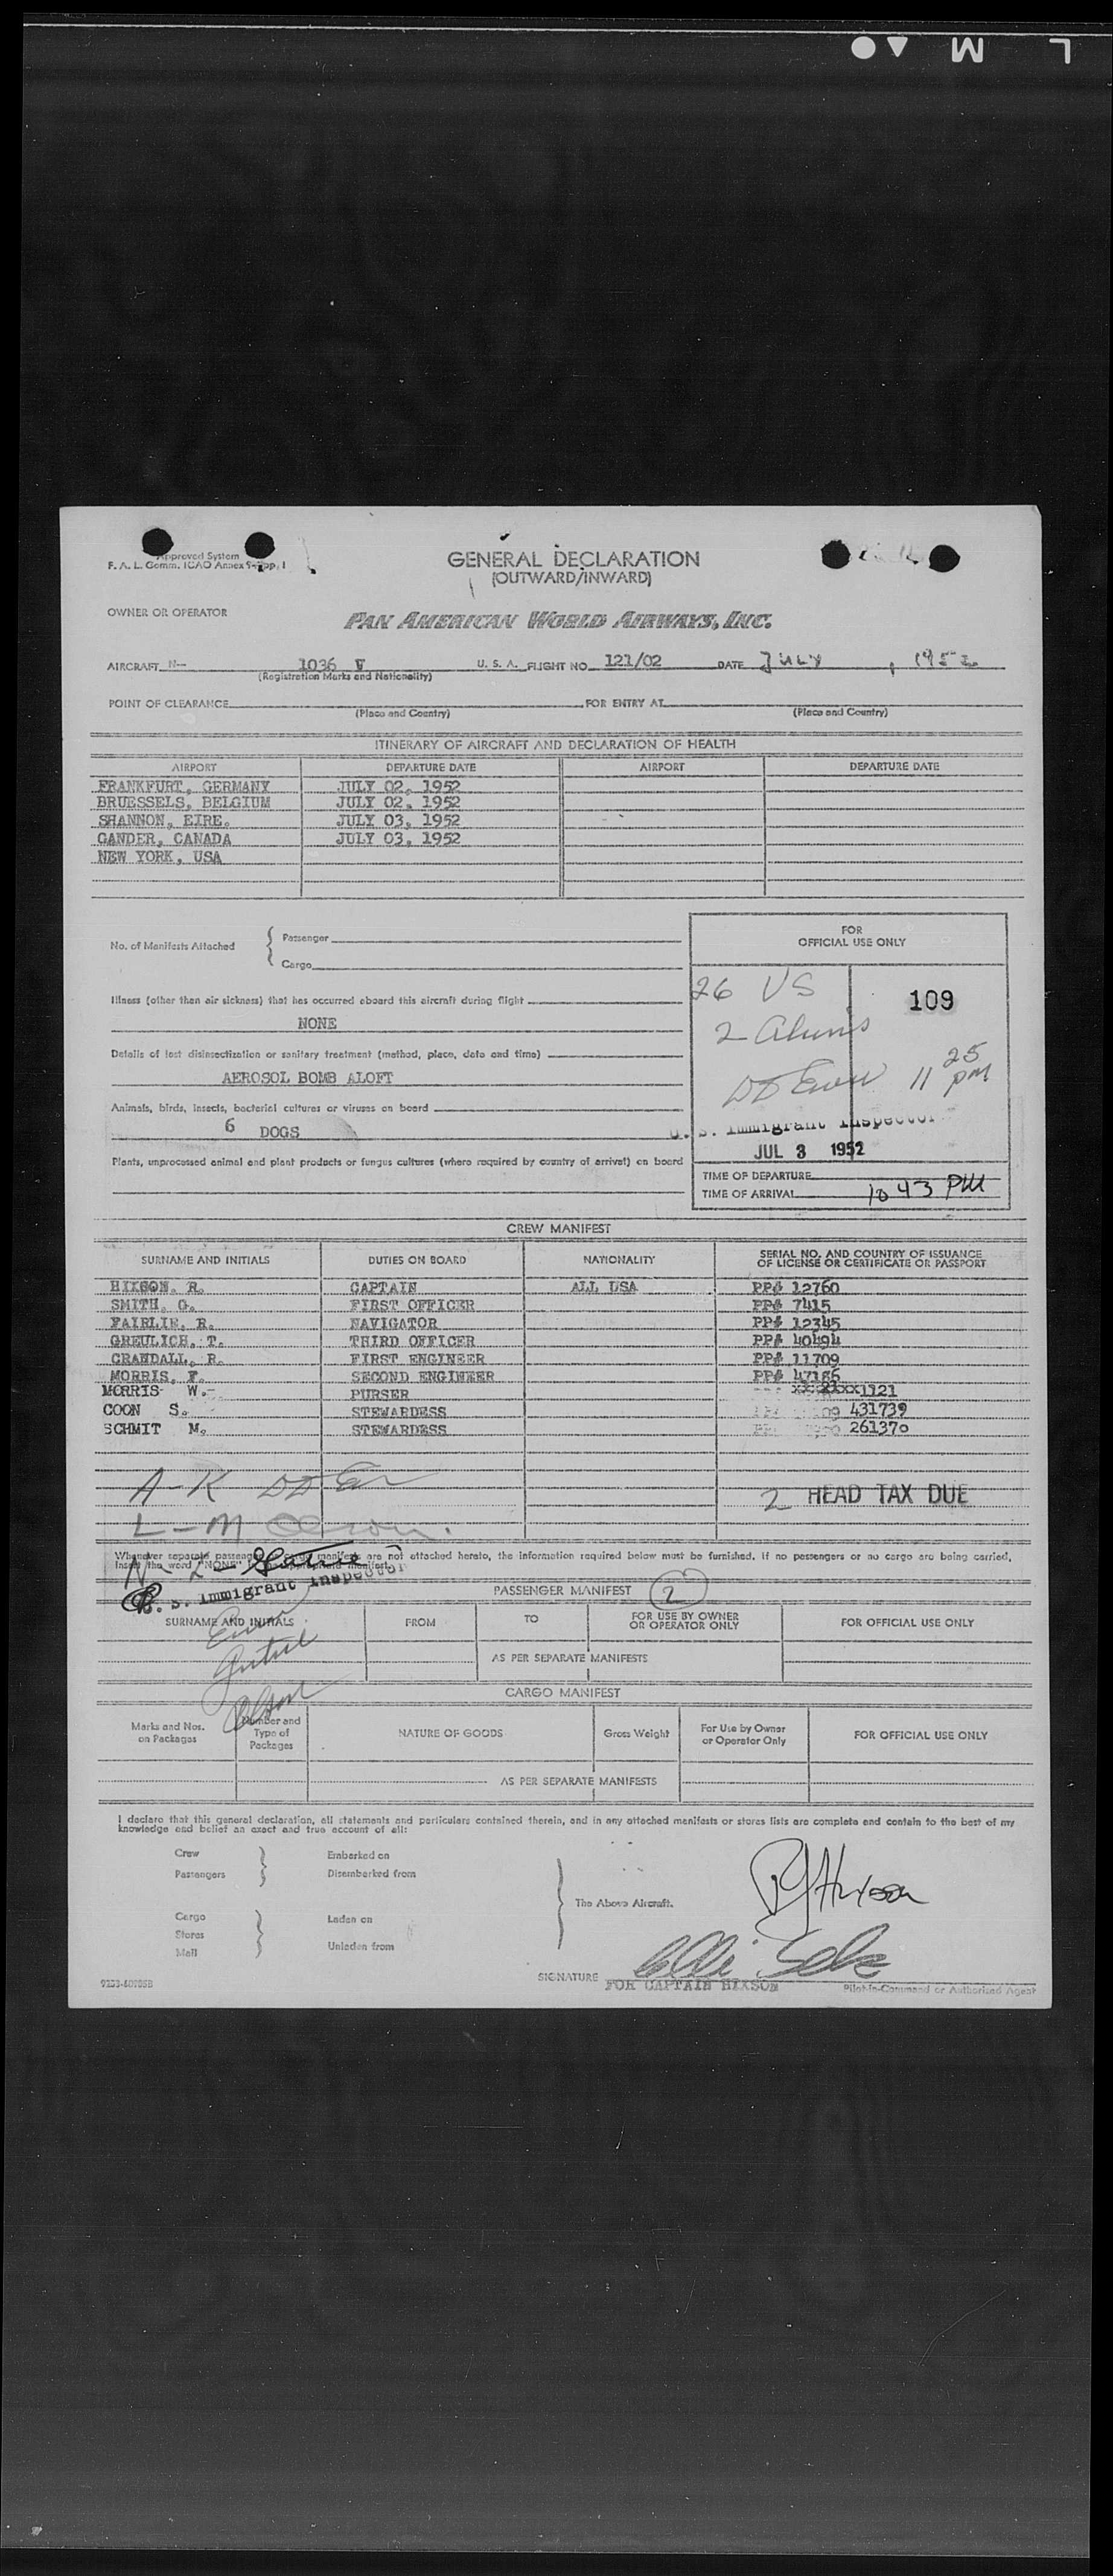 L M
Approved System
F. A. L. Comm. ICAO Annex 9-App. I
GENERAL DECLARATION
(OUTWARD/INWARD)
OWNER OR OPERATOR
PAN AMERICAN WORLD AIRWAYS, INC.
AIRCRAFT N- 1036 V U. S. A. FLIGHT NO. 121/02 DATE JULY , 1952
(Registration Marks and Nationality)
POINT OF CLEARANCE FOR ENTRY AT
(Place and Country) (Place and Country)
ITINERARY OF AIRCRAFT AND DECLARATION OF HEALTH
AIRPORT DEPARTURE DATE AIRPORT DEPARTURE DATE
FRANKFURT, GERMANY JULY 02, 1952
BRUESSELS, BELGIUM JULY 02, 1952
SHANNON, EIRE. JULY 03, 1952
GANDER, CANADA JULY 03, 1952
NEW YORK, USA
No. of Manifests Attached { Passenger
Cargo
FOR
OFFICIAL USE ONLY
26 US
109
2 Aliens
11 25 PM
U. S. Immigrant Inspector
JUL 3 1952
TIME OF DEPARTURE
TIME OF ARRIVAL 10 43 PM
Illness (other than air sickness) that has occurred aboard this aircraft during flight
NONE
Details of last disinsectization or sanitary treatment (method, place, date and time)
AEROSOL BOMB ALOFT
Animals, birds, insects, bacterial cultures or viruses on board
6 DOGS
Plants, unprocessed animal and plant products or fungus cultures (where required by country of arrival) on board
CREW MANIFEST
SURNAME AND INITIALS DUTIES ON BOARD NATIONALITY SERIAL NO. AND COUNTRY OF ISSUANCE
OF LICENSE OR CERTIFICATE OR PASSPORT
HIXSON, R. CAPTAIN ALL USA PP# 12760
SMITH, G. FIRST OFFICER PP# 7415
FAIRLIE, R. NAVIGATOR PP# 12345
GREULICH, T. THIRD OFFICER PP# 40494
CRANDALL, R. FIRST ENGINEER PP# 11709
MORRIS, F. SECOND ENGINEER PP# 47186
MORRIS W. PURSER 1121
COON S. STEWARDESS 431739
SCHMIT M. STEWARDESS 261370
A-K
2 HEAD TAX DUE
L-M Olson
Whenever separate passenger or cargo manifests are not attached hereto, the information required below must be furnished. If no passengers or no cargo are being carried,
insert the word "NONE" in the appropriate manifest.
N-Z
U. S. Immigrant Inspector
PASSENGER MANIFEST 2
SURNAME AND INITIALS FROM TO FOR USE BY OWNER
OR OPERATOR ONLY FOR OFFICIAL USE ONLY
AS PER SEPARATE MANIFESTS
Olson
CARGO MANIFEST
Marks and Nos.
on Packages Number and
Type of
Packages NATURE OF GOODS Gross Weight For Use by Owner
or Operator Only FOR OFFICIAL USE ONLY
AS PER SEPARATE MANIFESTS
I declare that this general declaration, all statements and particulars contained therein, and in any attached manifests or stores lists are complete and contain to the best of my
knowledge and belief an exact and true account of all:
Crew Embarked on
Passengers Disembarked from
The Above Aircraft.
Cargo Laden on
Stores
Mail Unladen from
RJHixson
SIGNATURE
FOR CAPTAIN HIXSON
Pilot-in-Command or Authorized Agent